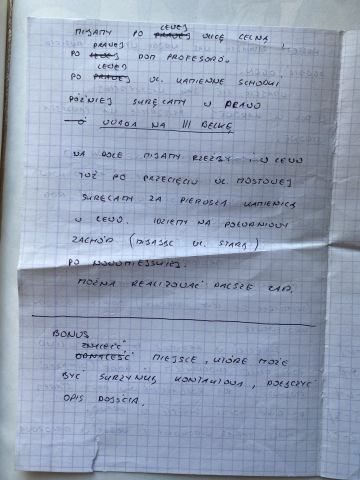 MIJAMY PO LEWEJ ULICĘ CELNĄ,
PO PRAWEJ DOM PROFESORÓW
PO LEWEJ PRAWEJ UL. KAMIENNE SCHODKI
PÓŹNIEJ SKRĘCAMY W PRAWO
UWAGA NA III BELKĘ
NA DOLE MIJAMY RZEŹBY I W LEWO
TUŻ PO PRZECIĘCIU UL. MOSTOWEJ
SKRĘCAMY ZA PIERWSZĄ KAMIENICĄ
W LEWO. IDZIEMY NA POŁUDNIOWY
ZACHÓD (MIJAJĄC UL. STARĄ)
PO NOWOMIEJSKIEJ.
MOŻNA REALIZOWAĆ DALSZE ZAD.
BONUS
ZNALEŹĆ
ODNALEŹĆ MIEJSCE, KTÓRE MOŻE
BYĆ SKRZYNKĄ KONTAKTOWĄ, DOŁĄCZYĆ
OPIS DOJŚCIA.